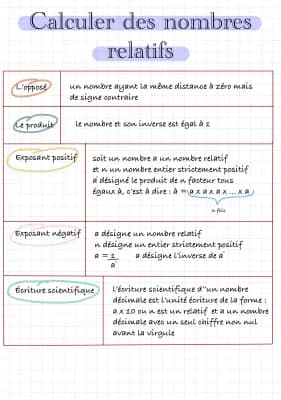 Calculer des nombres
relatifs
L'opposé
un nombre ayant la même distance à zéro mais
de signe contraire
Le produit
le nombre et son inverse est égal à 1
Exposant positif
soit un nombre a un nombre relatif
et n un nombre entier strictement positif
a désigné le produit de n facteur tous
égaux à, c'est à dire : a = a x a x a x ... x a
n fois
Exposant négatif
a désigne un nombre relatif
n désigne un entier strictement positif
a = 1 a désigne l'inverse de a
a
Écriture scientifique
l'écriture scientifique d"un nombre
décimale est l'unité écriture de la forme :
a x 10 ou n est un relatif et a un nombre
décimale avec un seul chiffre non nul
avant la virgule